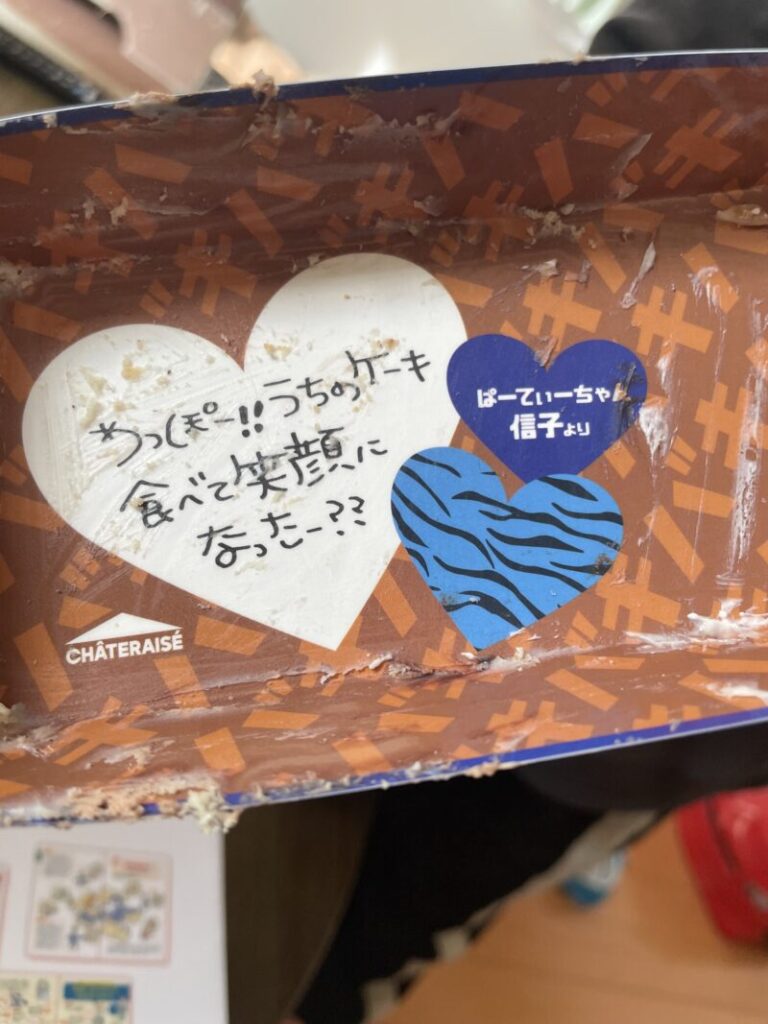 わっしょーい!!うちのケーキ
食べて笑顔に
なったー??
ぱーてぃーちゃん
信子より
CHÂTERAISÉ